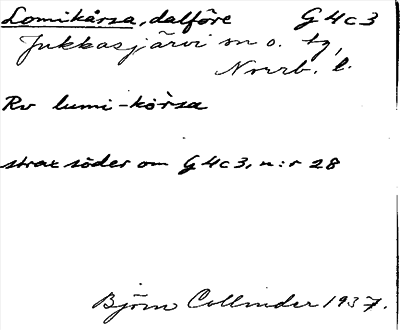 Lomikårsa, dalföre G4c3
Jukkasjärvi sn o. tg,
Norrb. l.
Rv lumi-kòrsa
strax söder om G4c3, n:r 28
Björn Collinder 1937.